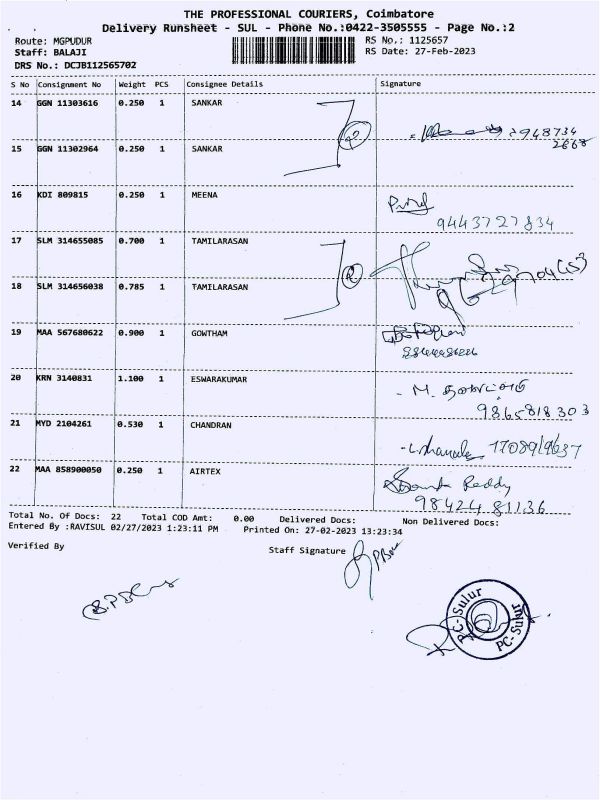 THE PROFESSIONAL COURIERS, Coimbatore
Delivery Runsheet - SUL - Phone No.:0422-3505555 - Page No.:2
Route: MGPUDUR RS No.: 1125657
Staff: BALAJI RS Date: 27-Feb-2023
DRS No.: DCJB112565702
S No Consignment No Weight PCS Consignee Details Signature
14 GGN 11303616 0.250 1 SANKAR
2
948734
2668
15 GGN 11302964 0.250 1 SANKAR
16 KDI 809815 0.250 1 MEENA
9443727834
17 SLM 314655085 0.700 1 TAMILARASAN
2
18 SLM 314656038 0.785 1 TAMILARASAN
19 MAA 567680622 0.900 1 GOWTHAM
20 KRN 3140831 1.100 1 ESWARAKUMAR
9865818303
21 MYD 2104261 0.530 1 CHANDRAN
22 MAA 858900050 0.250 1 AIRTEX
Reddy
98424 81136
Total No. Of Docs: 22 Total COD Amt: 0.00 Delivered Docs: Non Delivered Docs:
Entered By :RAVISUL 02/27/2023 1:23:11 PM Printed On: 27-02-2023 13:23:34
Verified By Staff Signature
PC-Sulur
PC-Sulur